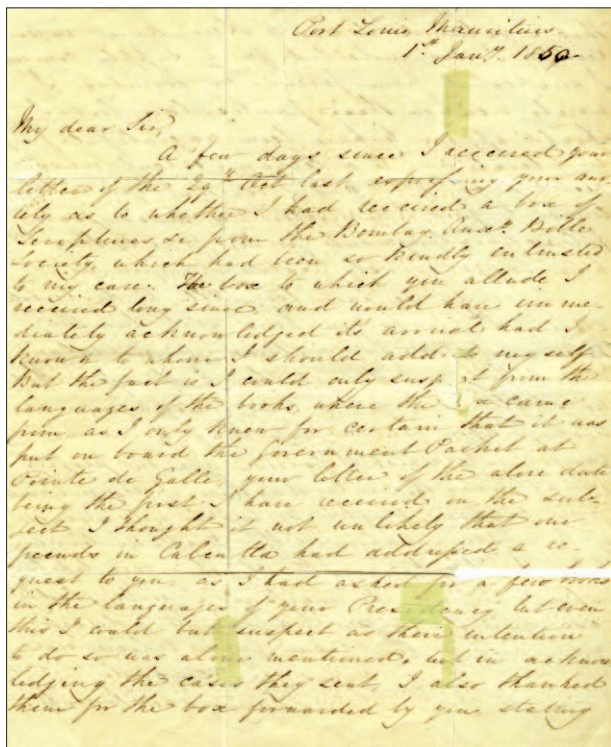 Port Louis, Mauritius
1st Jany. 1850
My dear Sir,
A few days since I received your
letter of the 29th Oct last expressing your anx
iety as to whether I had received a box of
Scriptures, &c from the Bombay Auxy. Bible
Society, which had been so kindly entrusted
to my care. The box to which you allude I
received long since and would have imme-
diately acknowledged it's arrival had I
known to whom I should address myself
But the fact is I could only suspect from the
languages of the books where the box came
from, as I only knew for certain that it was
put on board the Government Packet at
Pointe de Galle, your letter of the above date
being the first I have received on the sub-
ject I thought it not unlikely that our
friends in Calcutta had addressed a re-
quest to you, as I had asked for a few books
in the languages of your Presidency but even
this I could but suspect as their intention
to do so was alone mentioned, but in acknow
ledging the cases they sent, I also thanked
them for the box forwarded by you stating